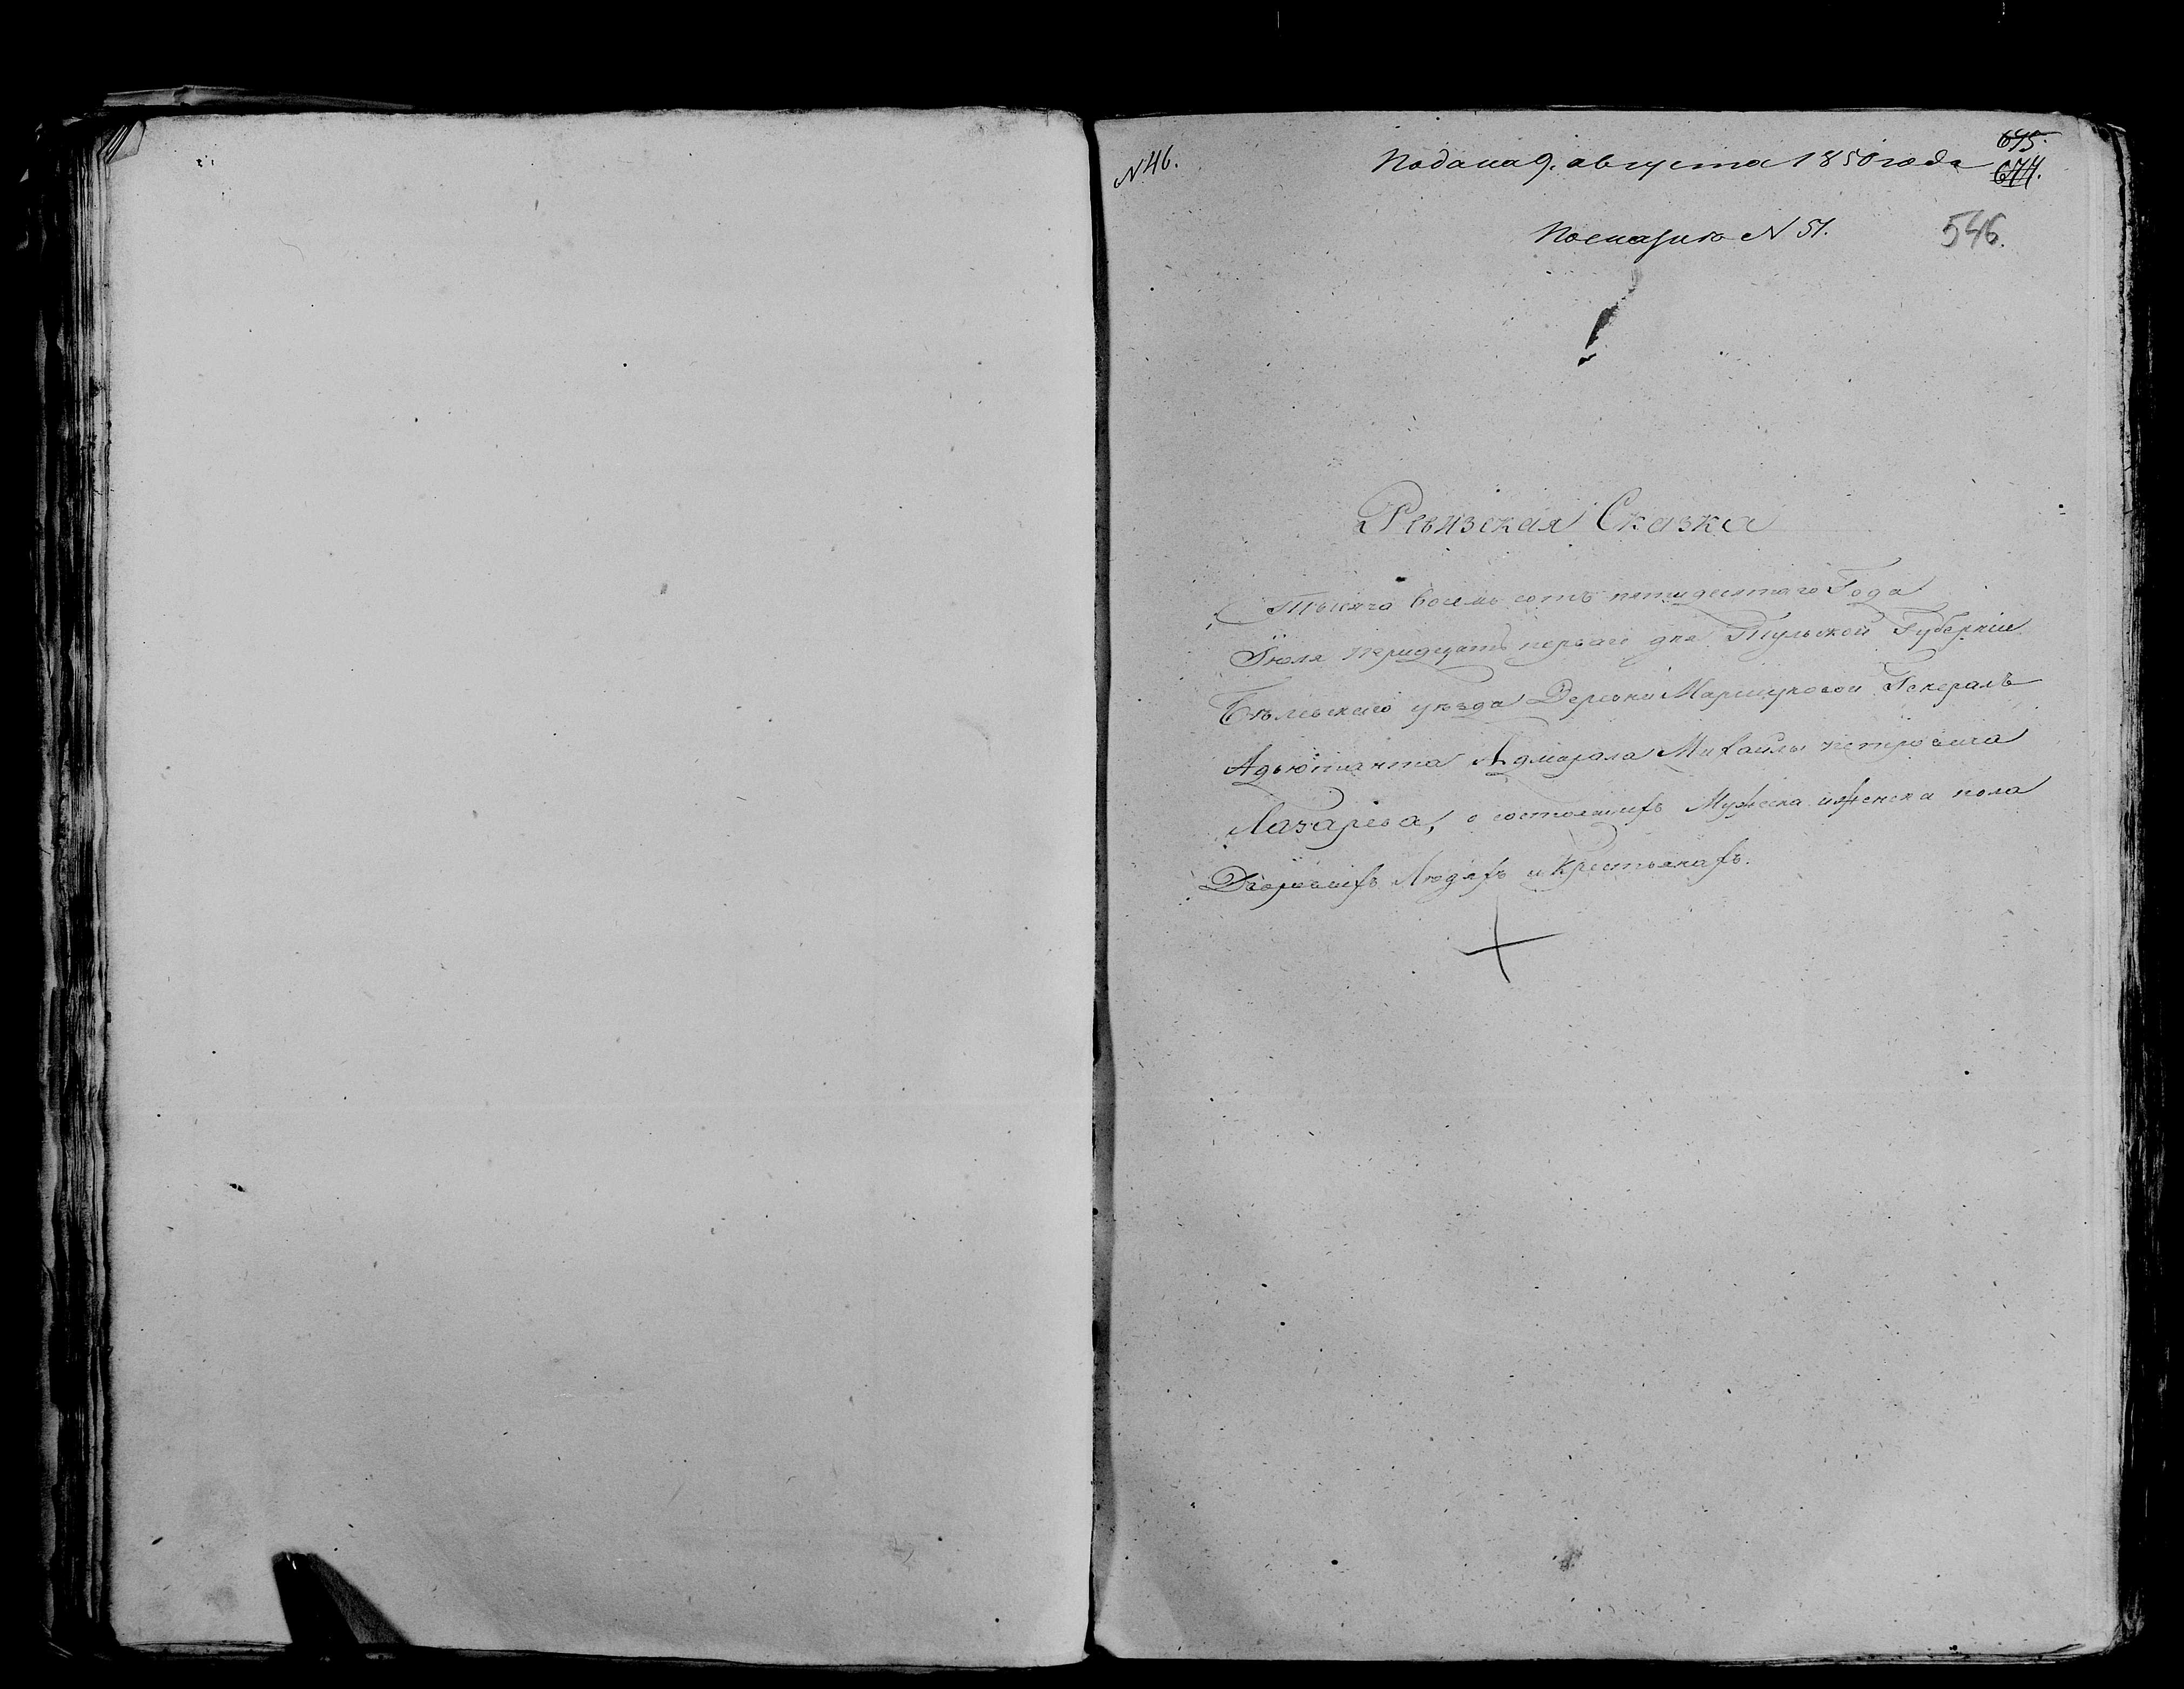 N 46.
Подана 9. августа 1850 года
675.
677.
N 51.
546.
Ревизская Сказка
Тысяча восемь сотъ пятидесятаго Года
Іюля тридцать перваго дня Тульской Губерніи
Бѣлевскаго уѣзда Деревни Маршуковой Генералъ
Адьютанта Адмирала Михайлы петровича
Лазарева, о состоящихъ Мужеска и женска пола
Дворовыхъ Людяхъ и Крестьянахъ.